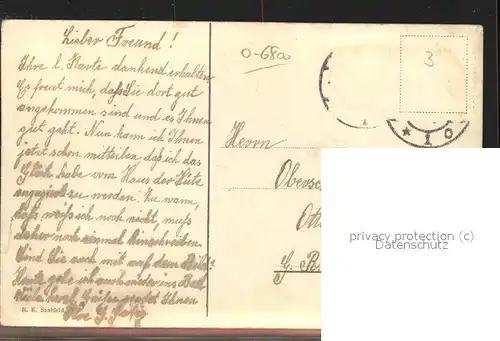 Lieber Freund!
Ihre l. Karte dankend erhalten
Es freut mich, daß Sie dort gut
angekommen sind und es Ihnen
gut geht. Nun kann ich Ihnen
jetzt schon mitteilen daß ich das
Glück habe vom Haus der
zu werden. Zu wann,
daß weiß ich noch nicht, muß
daher noch einmal hinschreiben.
Sind Sie auch mit auf dem Bild?
Heute gehe ich auch wieder ins Bad.
Grüße sendet Ihnen
Ihre G.
R. K. Saalfeld
0-6800
3
* 10
Herrn
Obersc
Ott
G. R
privacy protection (c)
Datenschutz